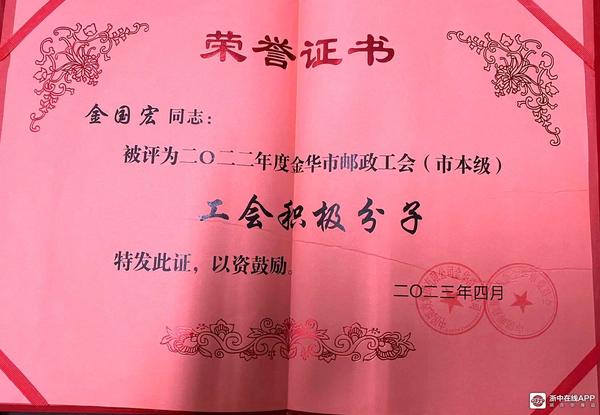 荣誉证书
金国宏同志：
被评为二〇二二年度金华市邮政工会（市本级）
工会积极分子
特发此证，以资鼓励。
二〇二三年四月
浙中在线APP